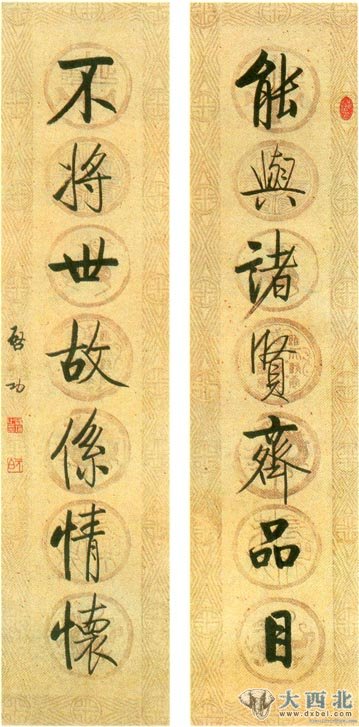 能與諸賢齊品目
不將世故係情懷
啓功
大西北
www.dxbei.com